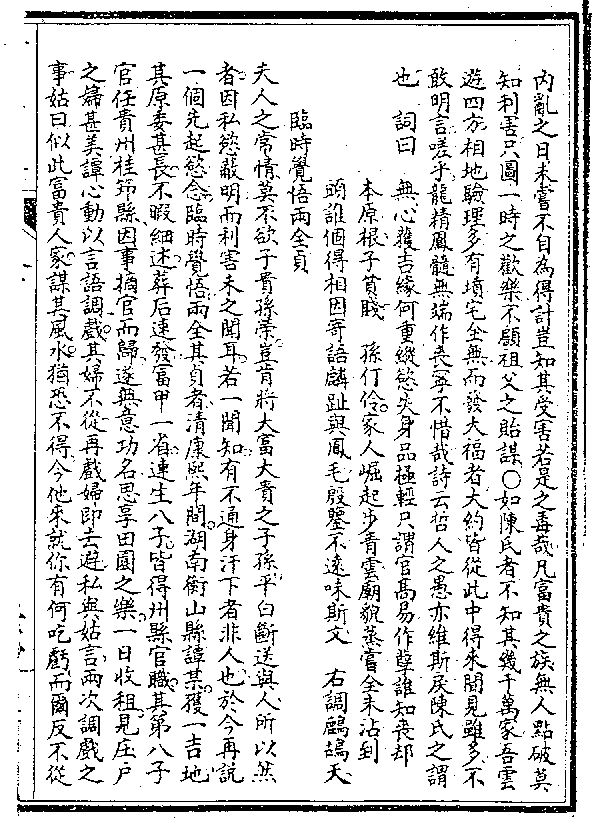 內亂之日未嘗不自為得計豈知其受害若是之毒哉凡富貴之族無人點破莫
知利害只圖一時之歡樂不顧祖父之貽謀〇如陳氏者不知其幾千萬家吾雲
遊四方相地驗理多有墳宅全無而發大福者大約皆從此中得來聞見雖多不
敢明言嗟乎龍精鳳髓無端作喪寧不惜哉詩云哲人之愚亦維斯戾陳氏之謂
也 詞曰 無心獲吉緣何重縱慾失身品極輕只謂官高易作孽誰知喪却
本原根子貧賤 孫仃伶家人崛起步青雲廟貌蒸嘗全未沾到
頭誰個得相因寄語麟趾與鳳毛殷鑒不遠味斯文 右調鷓鴣天
臨時覺悟兩全貞
夫人之常情莫不欲子貴孫榮豈肯將大富大貴之子孫平白斷送與人所以然
者因私慾蔽明而利害未之聞耳若一聞知有不通身汗下者非人也於今再說
一個先起慾念臨時覺悟兩全其貞者清康熙年間湖南衡山縣譚某獲一吉地
其原委甚長不暇細述葬后速發富甲一省連生八子皆得州縣官職其第八子
官任貴州桂䇹縣因事掯官而歸遂無意功名思享田園之樂一日收租見庄戶
之婦甚美譚心動以言語調戲其婦不從再戲婦即去避私與姑言兩次調戲之
事姑曰似此富貴人家謀其風水猶恐不得今他來就你有何吃虧而爾反不從